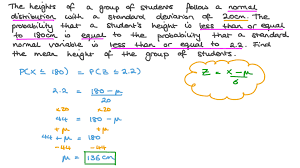 The heights of a group of students follow a normal
distribution with a standard deviation of 20cm. The
probability that a student's height is less than or equal
to 180cm is equal to the probability that a standard
normal variable is less than or equal to 2.2. Find
the mean height of the group of students.
P(X ≤ 180) = P(Z ≤ 2.2)
Z = x - μ / σ
2.2 = 180 - μ / 20
×20 ×20
44 = 180 - μ
+μ +μ
44 + μ = 180
-44 -44
μ = 136cm